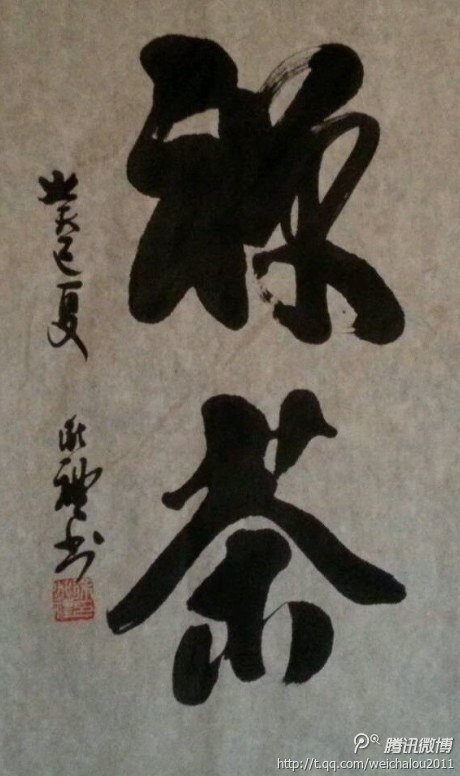 禅茶
癸巳夏
书
腾讯微博
http://t.qq.com/weichalou2011